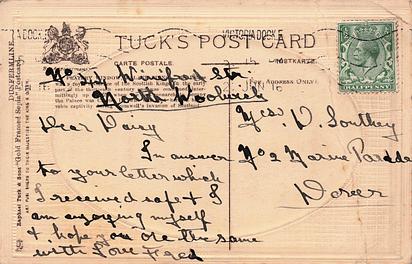 VICTORIA DOCK E
TUCK'S POST CARD
CARTE POSTALE.
POSTKARTE.
FOR ADDRESS ONLY.
JUN 16
HALFPENNY
DUNFERMLINE.
Raphael Tuck & Sons' "Gold Framed Sepia" Postcard
Winifred Str
North Woolwich
Dear Daisy
In answer
to your letter which
I received safe & I
am enjoying myself
& hope you are the same
with Love Fred
Miss D. Southey
No 2 Marine Parade
Dover